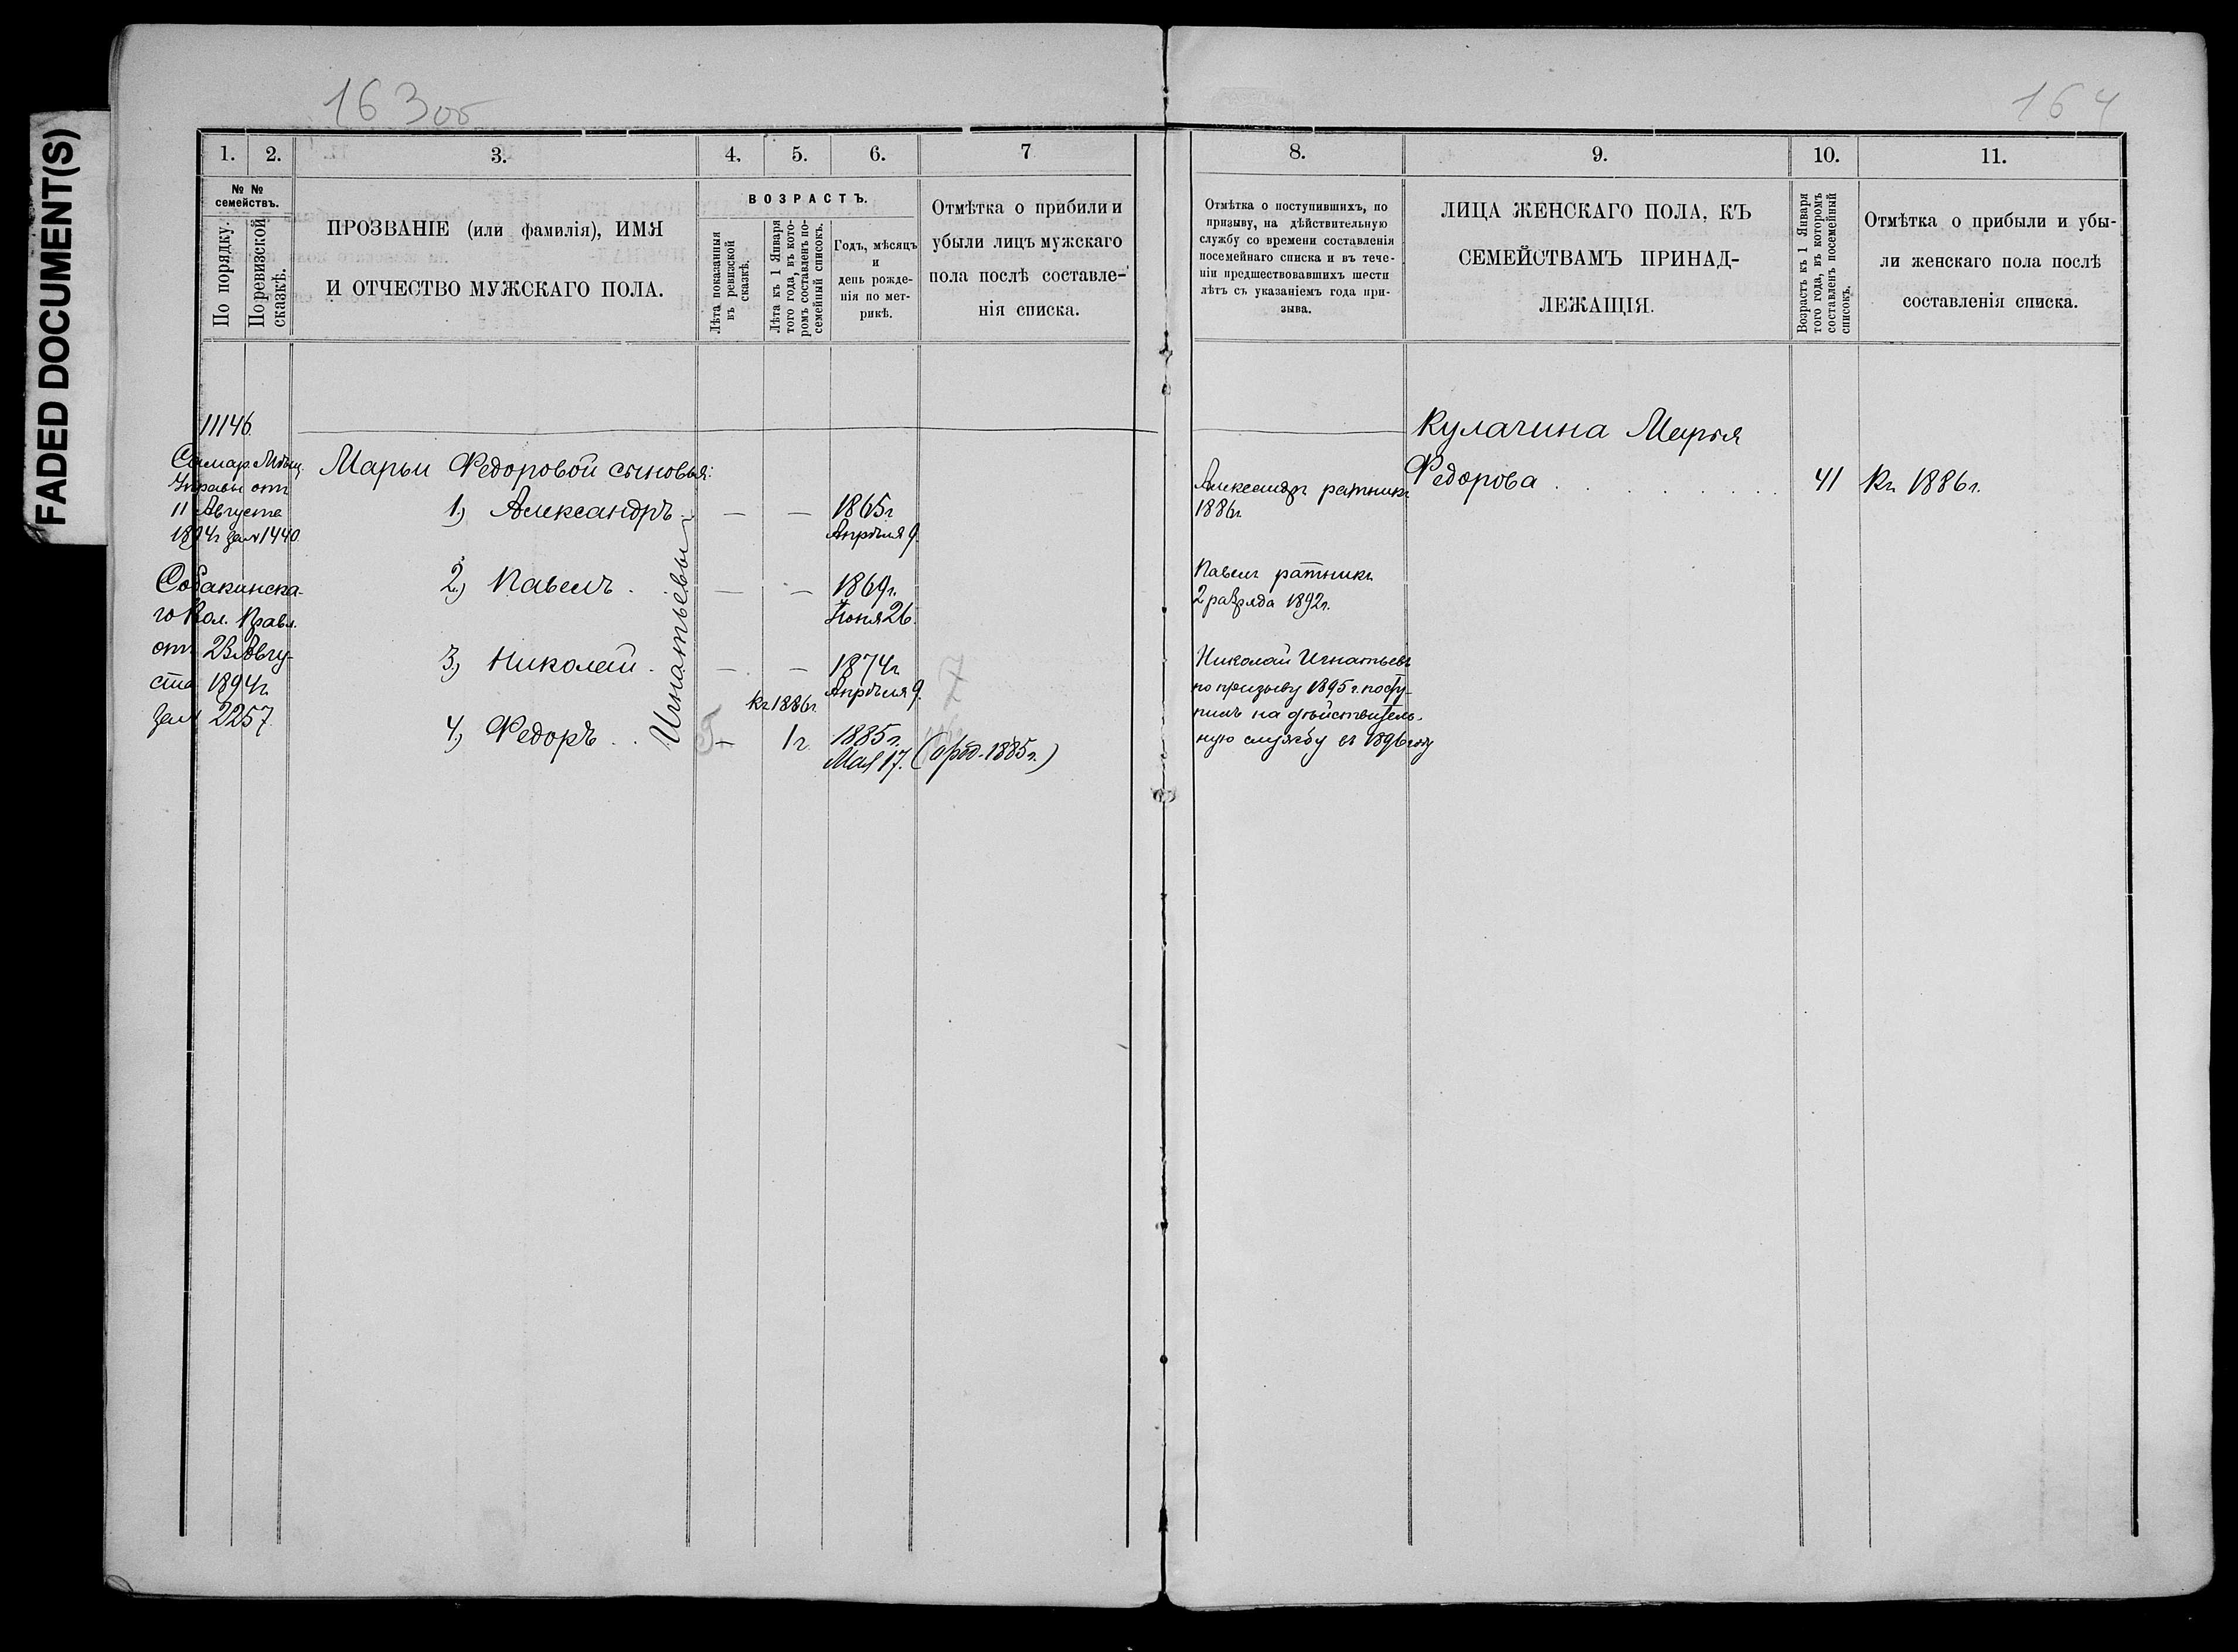 FADED DOCUMENT(S)
163об
164
1. 2. 3. 4. 5. 6. 7
№ № семействъ.
По порядку.
По ревизской сказкѣ.
ПРОЗВАНІЕ (или фамилія), ИМЯ
И ОТЧЕСТВО МУЖСКАГО ПОЛА.
ВОЗРАСТЪ.
Лѣта показанныя въ ревизской сказкѣ.
Лѣта къ 1 Января того года, въ которомъ составленъ посемейный списокъ.
Годъ, мѣсяцъ
и
день рожде-
нія по мет-
рикѣ.
Отмѣтка о прибыли и
убыли лицъ мужскаго
пола послѣ составле-
нія списка.
11146.
Самар. Мѣщ.
Управы отъ
11 Августа
1894г за № 1440.
Собакинска-
го Вол. Правл.
отъ 23 Авгу-
ста 1894г.
за № 2257.
Марьи Федоровой сыновья:
1) Александръ — — 1865г
Апрѣля 9.
2) Павелъ — — 1869г.
Іюня 26.
3) Николай — — 1874г.
Апрѣля 9.
7
Игнатьевы
Къ 1886г.
4) Федоръ — 1г. 1885г.
Мая 17. (а род. 1885г.)
8. 9. 10. 11.
Отмѣтка о поступившихъ, по
призыву, на дѣйствительную
службу со времени составленія
посемейнаго списка и въ тече-
ніи предшествовавшихъ шести
лѣтъ съ указаніемъ года при-
зыва.
ЛИЦА ЖЕНСКАГО ПОЛА, КЪ
СЕМЕЙСТВАМЪ ПРИНАД-
ЛЕЖАЩІЯ.
Возрастъ къ 1 Января того года, въ которомъ составленъ посемейный списокъ.
Отмѣтка о прибыли и убы-
ли женскаго пола послѣ
составленія списка.
Кулагина Марья
Федорова 41 Къ 1886г.
Александръ ратникъ
1886г.
Павелъ ратникъ
2 разряда 1892г.
Николай Игнатьевъ
по призыву 1895г. посту-
пилъ на дѣйствитель-
ную службу въ 1896 году